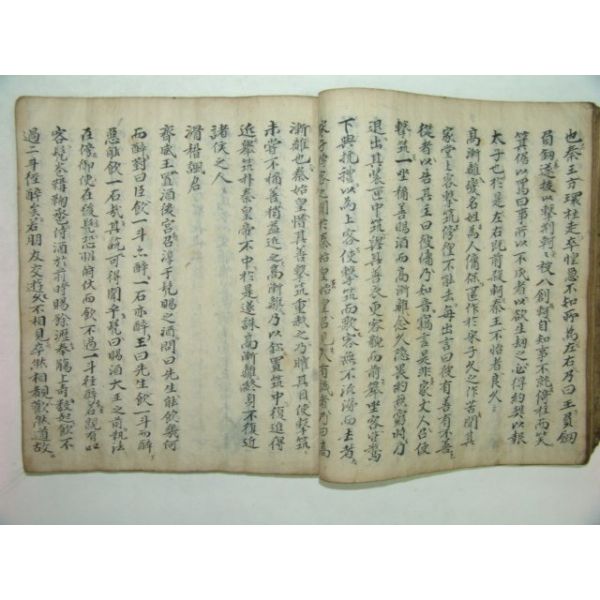 也秦王方環柱走卒惶急不知所爲左右乃曰王負劒
負劒遂拔以擊荊軻軻被八創軻自知事不就倚柱而笑
箕踞以罵曰事所以不成者以欲生劫之必得約契以報
太子也於是左右旣前殺軻秦王不怡者良久
高漸離變名姓爲人傭保匿作於宋子久之作苦聞其
家堂上客擊筑傍徨不能去每出言曰彼有善有不善
從者以告其主曰彼傭乃知音竊言是非家丈人召使
擊筑一坐稱善賜酒而高漸離念久隱畏約無窮時乃
退出其裝匣中筑與其善衣更容貌而前擧坐客皆驚
下與抗禮以爲上客使擊筑而歌客無不流涕而去者
宋子傳客之聞於秦始皇始皇召見人有識者乃曰高
漸離也秦始皇惜其善擊筑重赦之乃矐其目使擊筑
未嘗不稱善稍益近之高漸離乃以鈆置筑中復進得
近擧筑朴秦皇帝不中於是遂誅高漸離終身不復近
諸侯之人
滑稽
齊威王置酒後宮召淳于髡賜之酒問曰先生能飮幾何
而醉對曰臣飮一斗亦醉一石亦醉王曰先生飮一斗而醉
惡能飮一石哉其說可得聞乎髡曰賜酒大王之前執法
在傍御史在後髡恐懼俯伏而飮不過一斗徑醉若親有
客髡帣韝鞠侍酒於前時賜餘瀝奉觴上壽數起飮不
過二斗徑醉矣若朋友交遊久不相見卒然相覩歡然道故